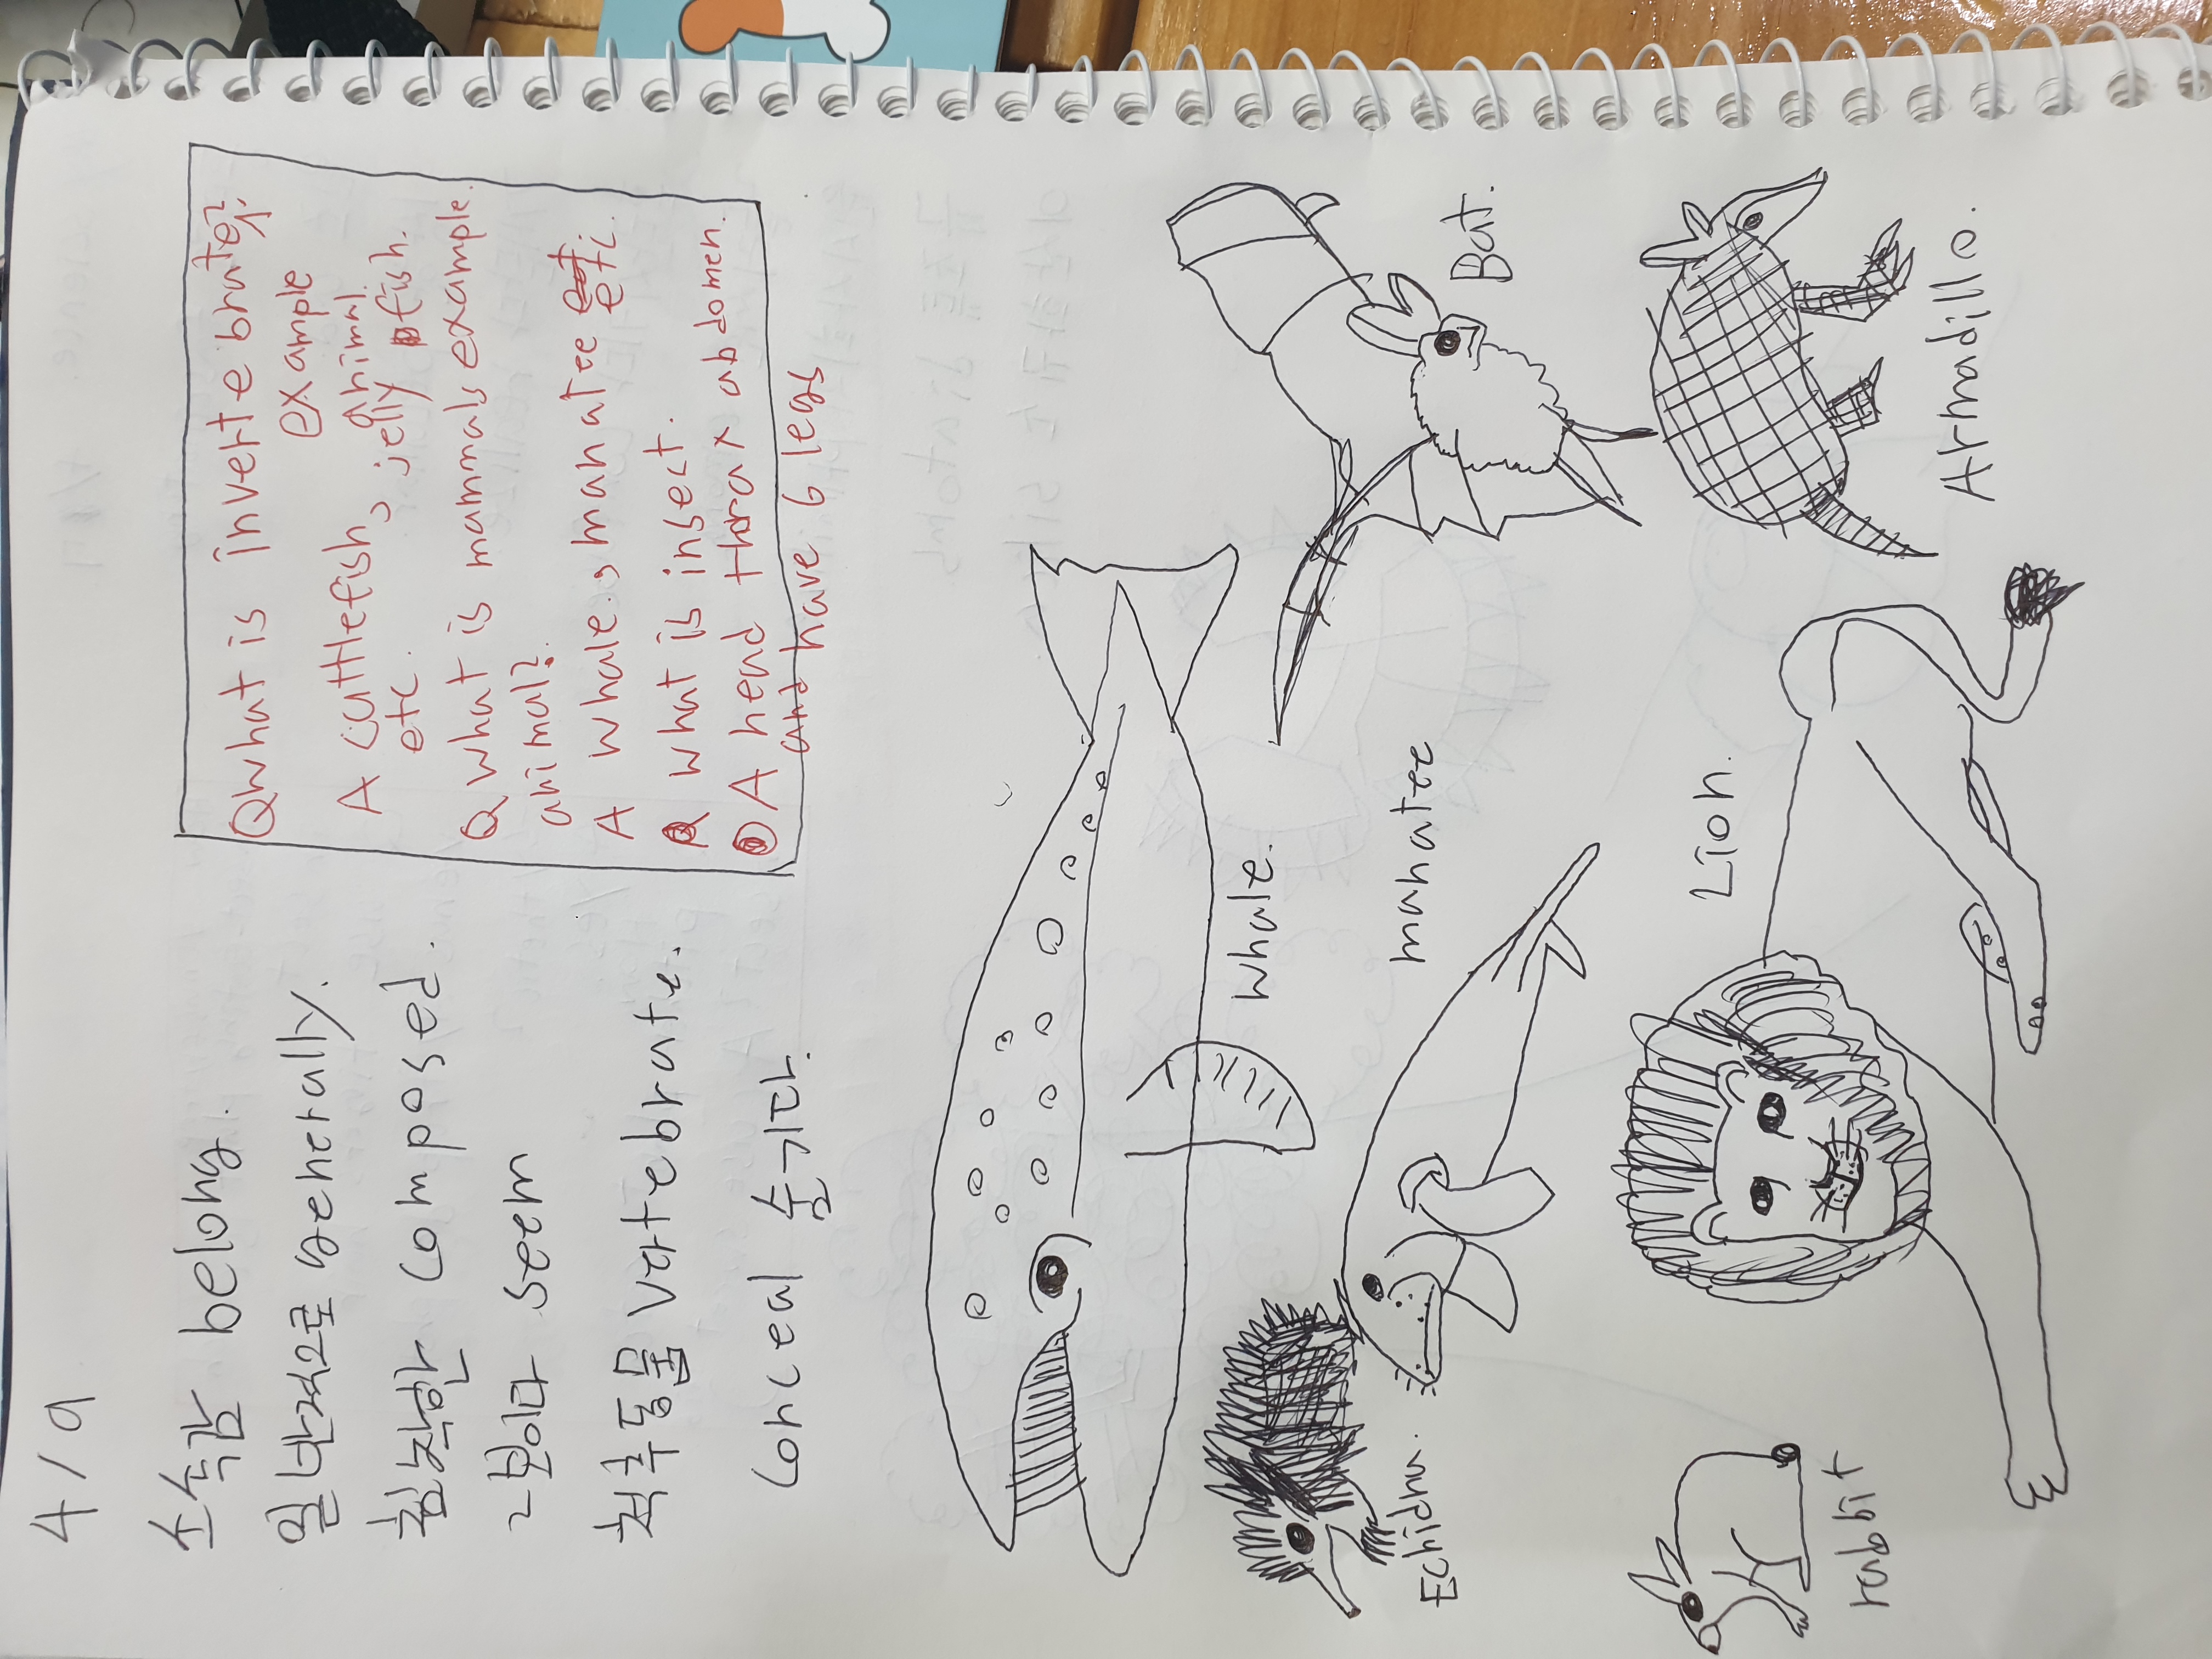 4/9
소속감 belong.
일반적으로 generally.
침착한 composed.
~보이다 seem
척추동물 vertebrate.
conceal 숨기다.
Q what is invertebrate
example
animal.
A cuttlefish, jelly fish.
etc.
Q what is mammals example
animal?
A whale, manatee etc.
Q what is insect.
A head thorax abdomen.
and have 6 legs
whale.
Bat.
Echidna.
manatee
Armadillo.
Lion.
rabbit